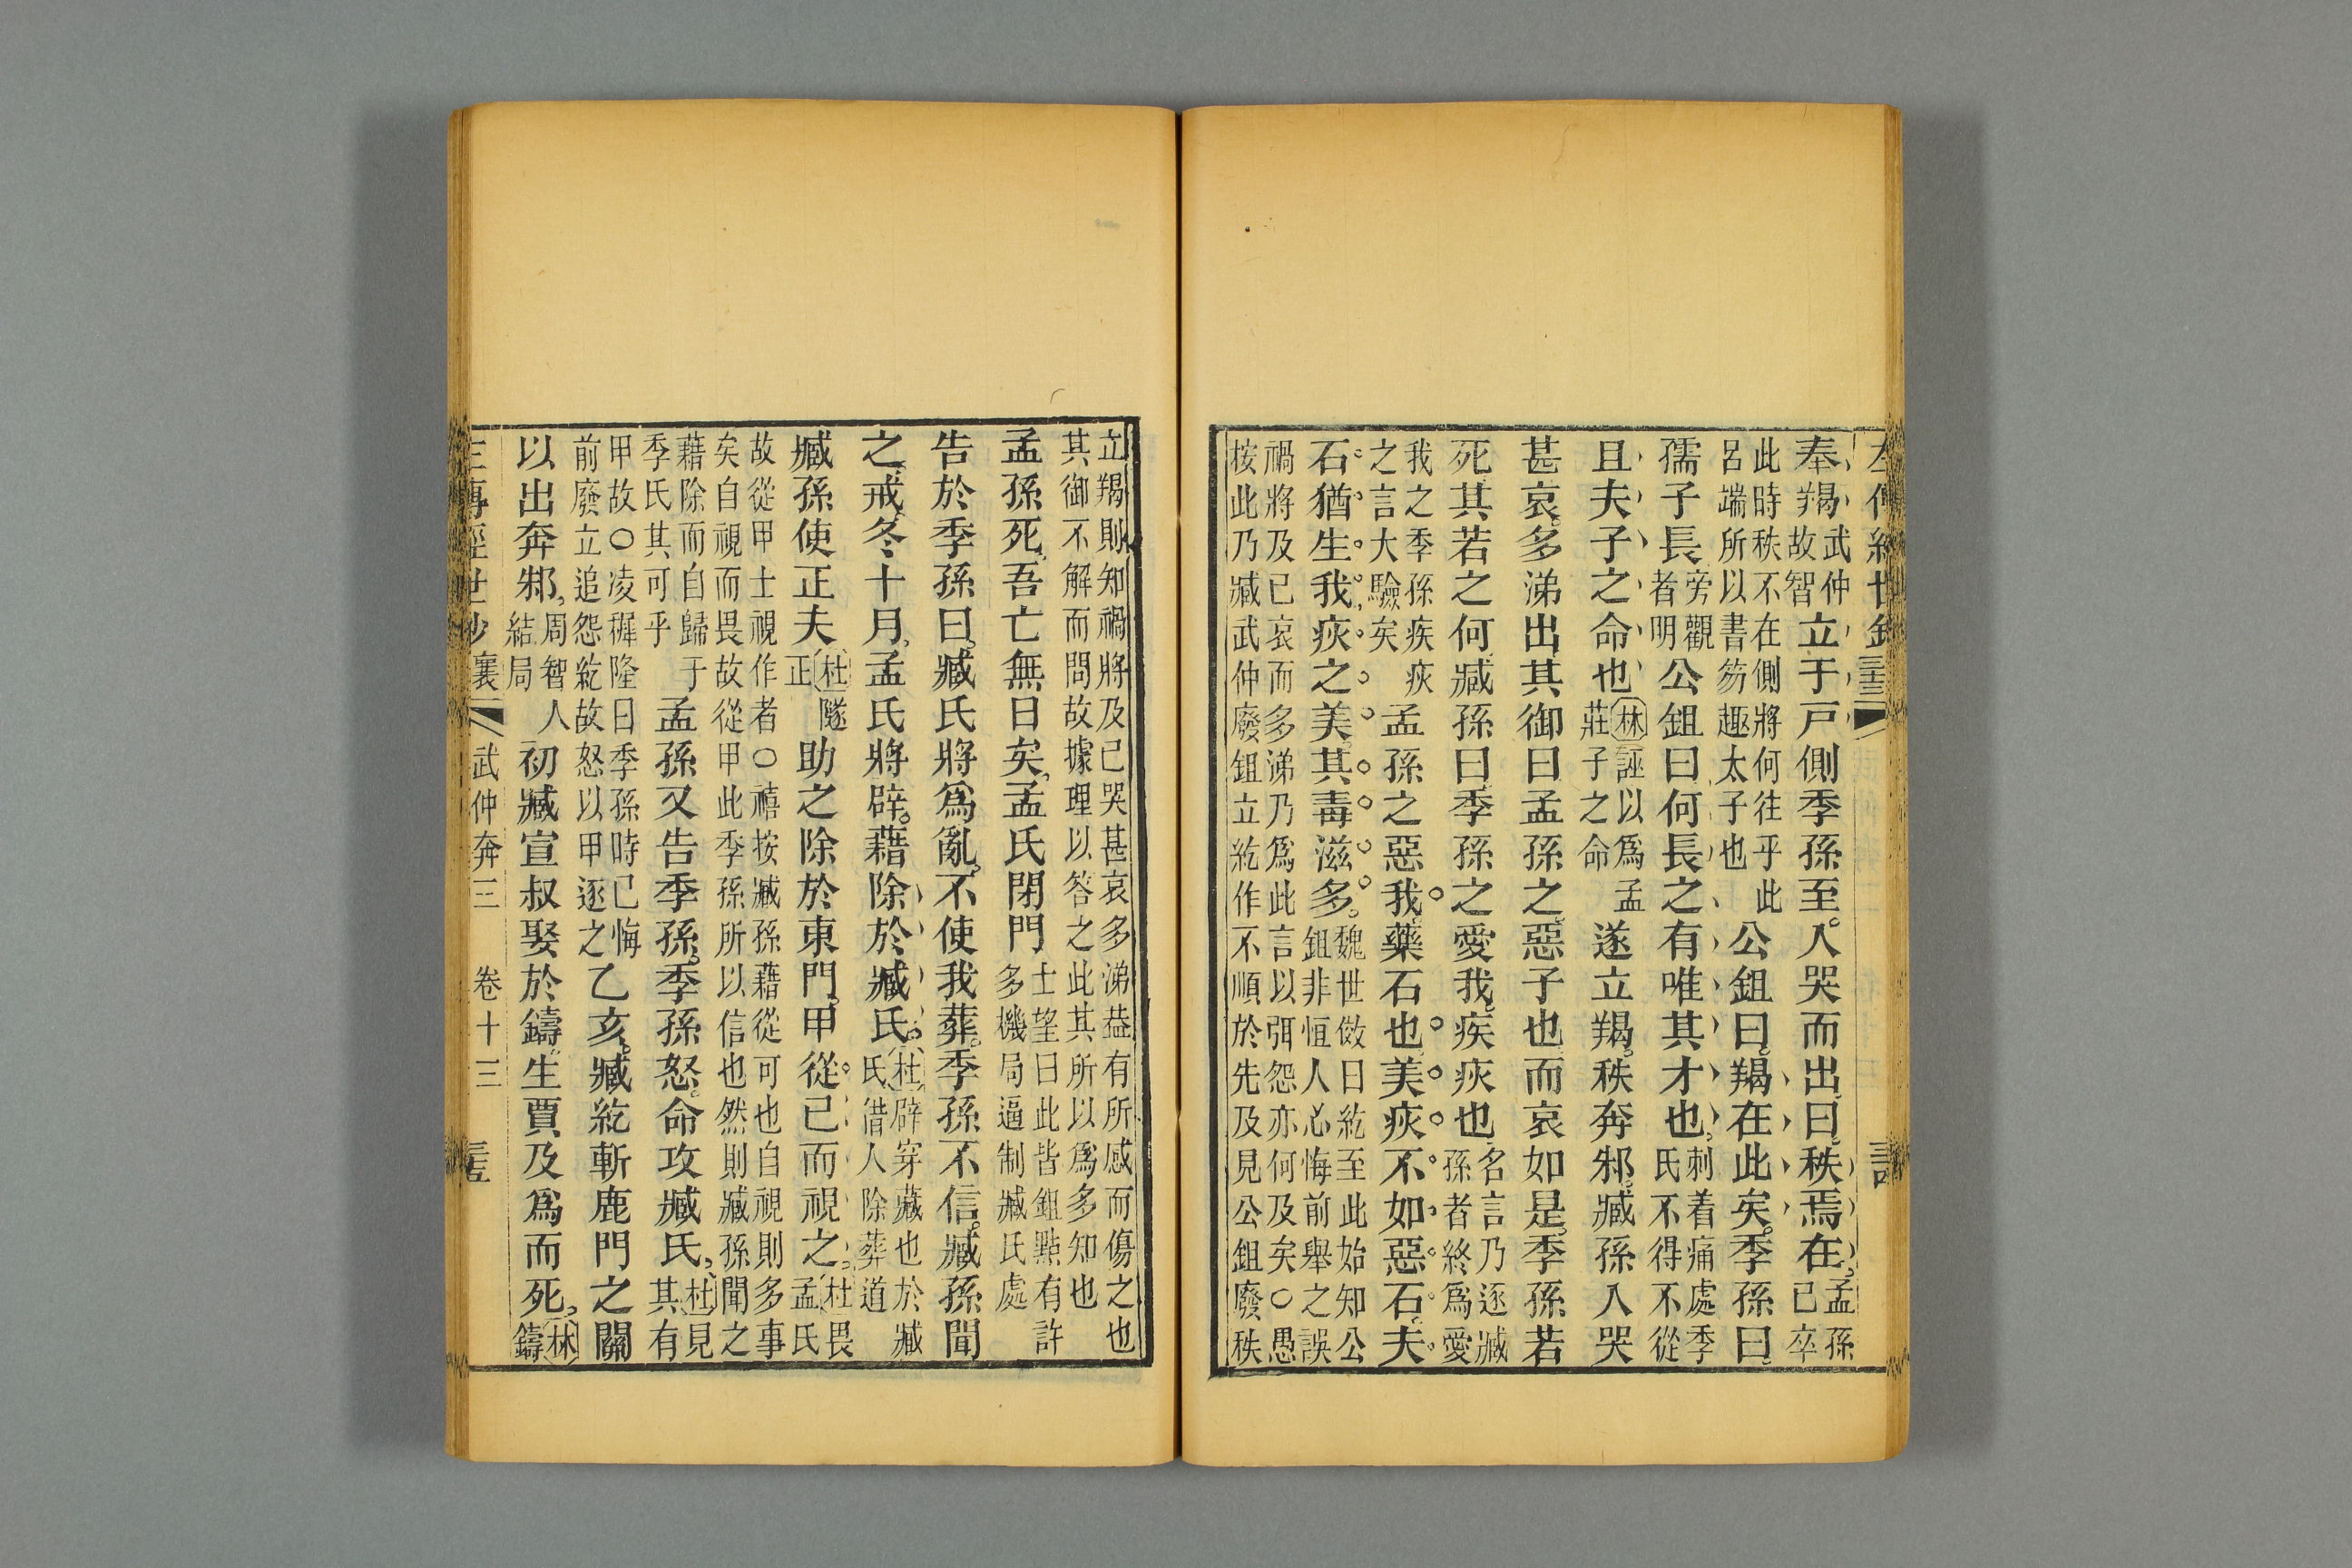 奉羯武仲故智立于戸側季孫至入哭而出曰秩焉在孟孫已卒
此時秩不在側將何往乎此呂端所以書笏趣太子也公鉏曰羯在此矣季孫曰
孺子長旁觀者明公鉏曰何長之有唯其才也刺着痛處季氏不得不從
且夫子之命也林誣以爲孟莊子之命遂立羯秩奔邾臧孫入哭
甚哀多涕出其御曰孟孫之惡子也而哀如是季孫若
死其若之何臧孫曰季孫之愛我疾疢也名言乃逐臧孫者終爲愛
我之季孫疾疢之言大驗矣孟孫之惡我藥石也美疢不如惡石夫
石猶生我疢之美其毒滋多魏世傚曰紇至此始知公鉏非恒人必悔前舉之誤
禍將及已哀而多涕乃爲此言以弭怨亦何及矣○愚
按此乃臧武仲廢鉏立紇作不順於先及見公鉏廢秩
立羯則知禍將及已哭甚哀多涕葢有所感而傷之也
其御不解而問故據理以答之此其所以爲多知也
孟孫死吾亡無日矣孟氏閉門士望曰此皆鉏㸃有許多機局逼制臧氏處
告於季孫曰臧氏將爲亂不使我葬季孫不信臧孫聞
之戒冬十月孟氏將辟藉除於臧氏杜辟穿藏也於臧氏借人除葬道
臧孫使正夫杜隧正助之除於東門甲從已而視之杜畏孟氏
故從甲士視作者○禧按臧孫藉從可也自視則多事
矣自視而畏故從甲此季孫所以信也然則臧孫聞之
藉除而自歸于季氏其可乎孟孫又告季孫季孫怒命攻臧氏杜見其有
甲故○凌穉隆曰季孫時已悔前廢立追怨紇故怒以甲逐之乙亥臧紇斬鹿門之關
以出奔邾周智人結局初臧宣叔娶於鑄生賈及爲而死林鑄
左傳經世鈔 襄 武仲奔三 卷十三 三五